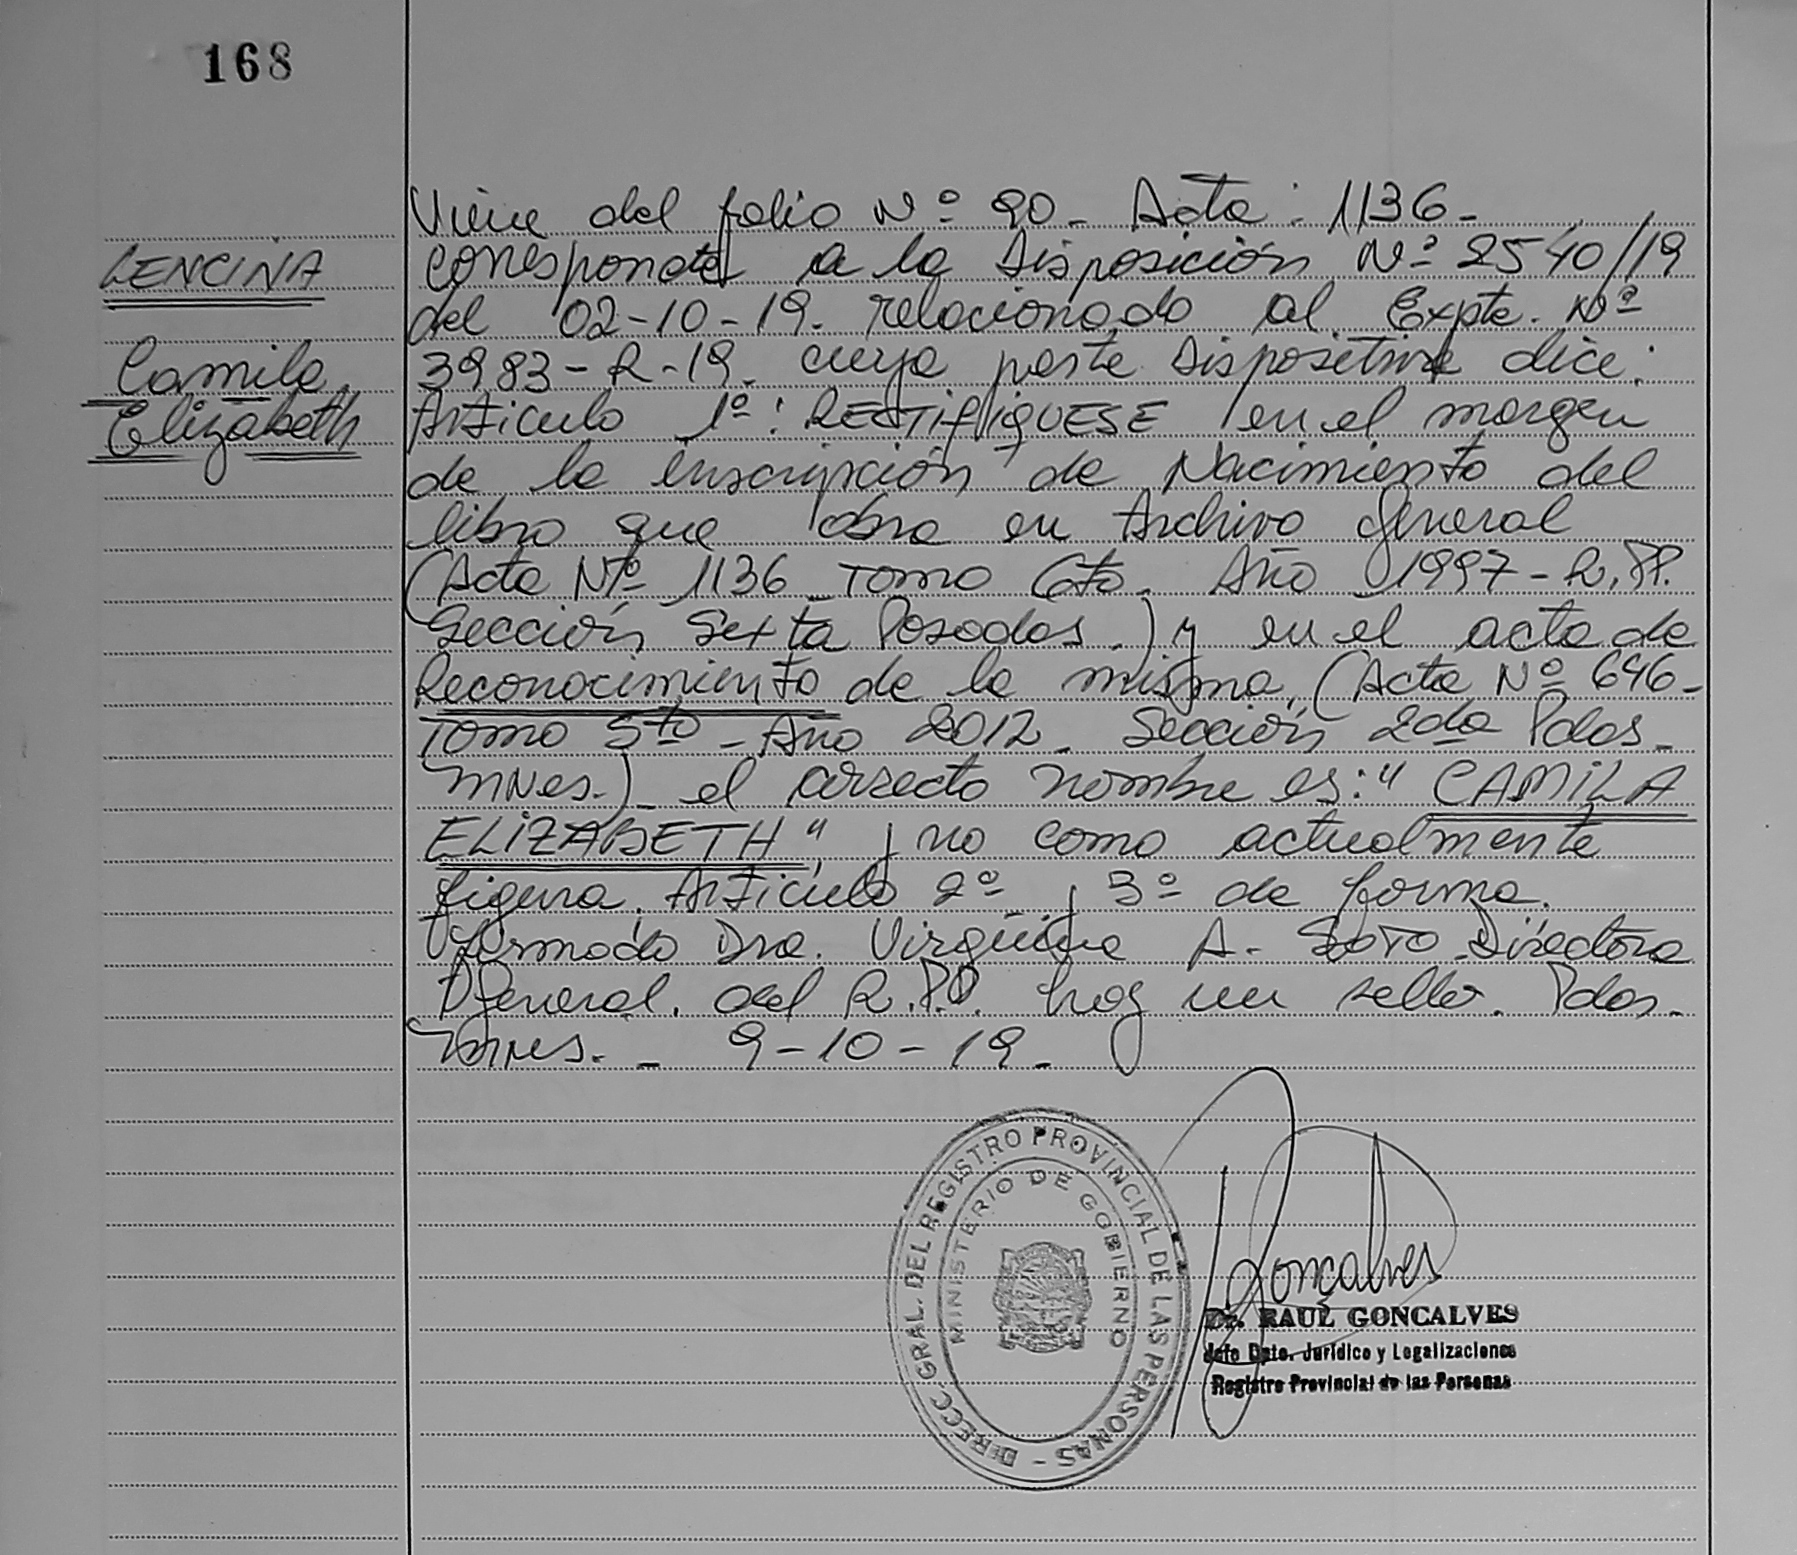 168
LENCINA
Camila
Elizabeth
Viene del folio Nº 90 - Acta: 1136 -
correspondte a la Disposición Nº 2540/19
del 02-10-19. relacionado al Expte. Nº
3983-R-19. cuya parte Dispositiva dice:
Articulo 1º: RECTIFIQUESE en el margen
de la inscripción de Nacimiento del
libro que obra en Archivo General
(Acta Nº 1136 Tomo 6to. Año 1997 - R.PP.
Sección Sexta Posadas.) y en el acta de
Reconocimiento de la misma, (Acta Nº 646 -
Tomo 5to - Año 2012. Sección 2da Pdas -
Mnes.) - el correcto nombre es: " CAMILA
ELIZABETH", y no como actualmente
figura. Articulo 2º y 3º de forma.
Firmado Dra. A. SOTO Directora
General. del R.P.P. hay un sello. Pdas.
Mnes. - 9-10-19 -
DIRECC. GRAL. DEL REGISTRO PROVINCIAL DE LAS PERSONAS -
MINISTERIO DE GOBIERNO
Goncalves
Dr. RAUL GONCALVES
Jefe Dpto. Jurídico y Legalizaciones
Registro Provincial de las Personas